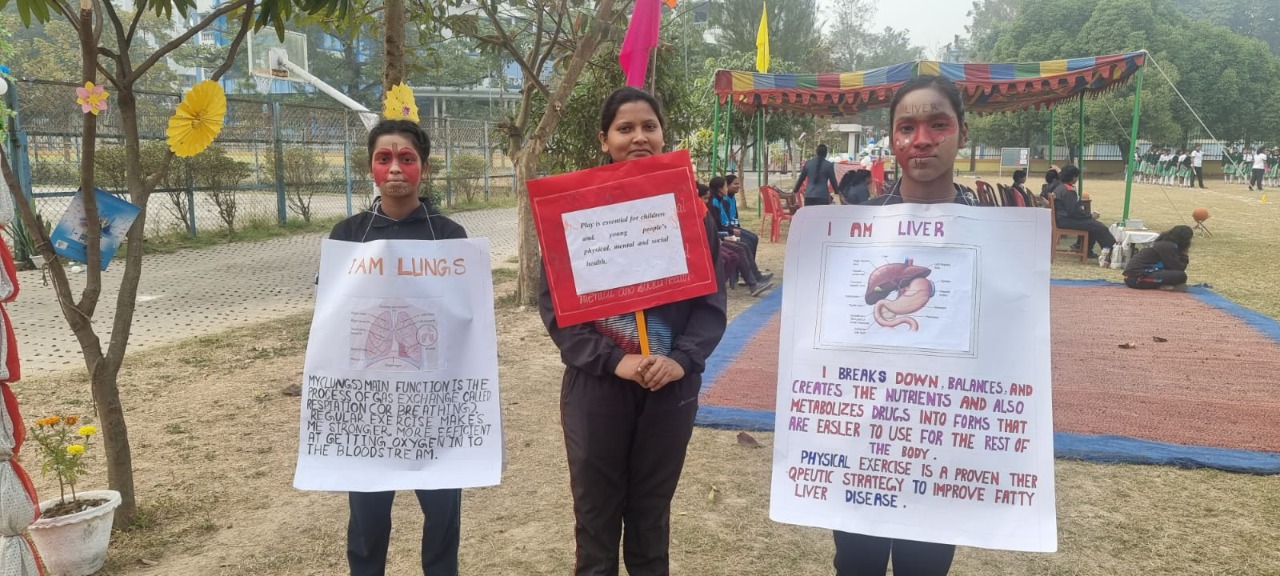 I AM LUNGS
MY(LUNGS) MAIN FUNCTION IS THE
PROCESS OF GAS EXCHANGE CALLED
RESPIATION (OR BREATHING).
REGULAR EXERCISE MAKES
ME STRONGER, MORE EFFICIENT
AT GETTING OXYGEN IN TO
THE BLOODSTREAM.
Play is essential for children
and young people's
physical, mental and social
health.
mental and social health
LIVER
I AM LIVER
I BREAKS DOWN, BALANCES, AND
CREATES THE NUTRIENTS AND ALSO
METABOLIZES DRUGS INTO FORMS THAT
ARE EASLER TO USE FOR THE REST OF
THE BODY.
PHYSICAL EXERCISE IS A PROVEN THER
QPEUTIC STRATEGY TO IMPROVE FATTY
LIVER DISEASE.